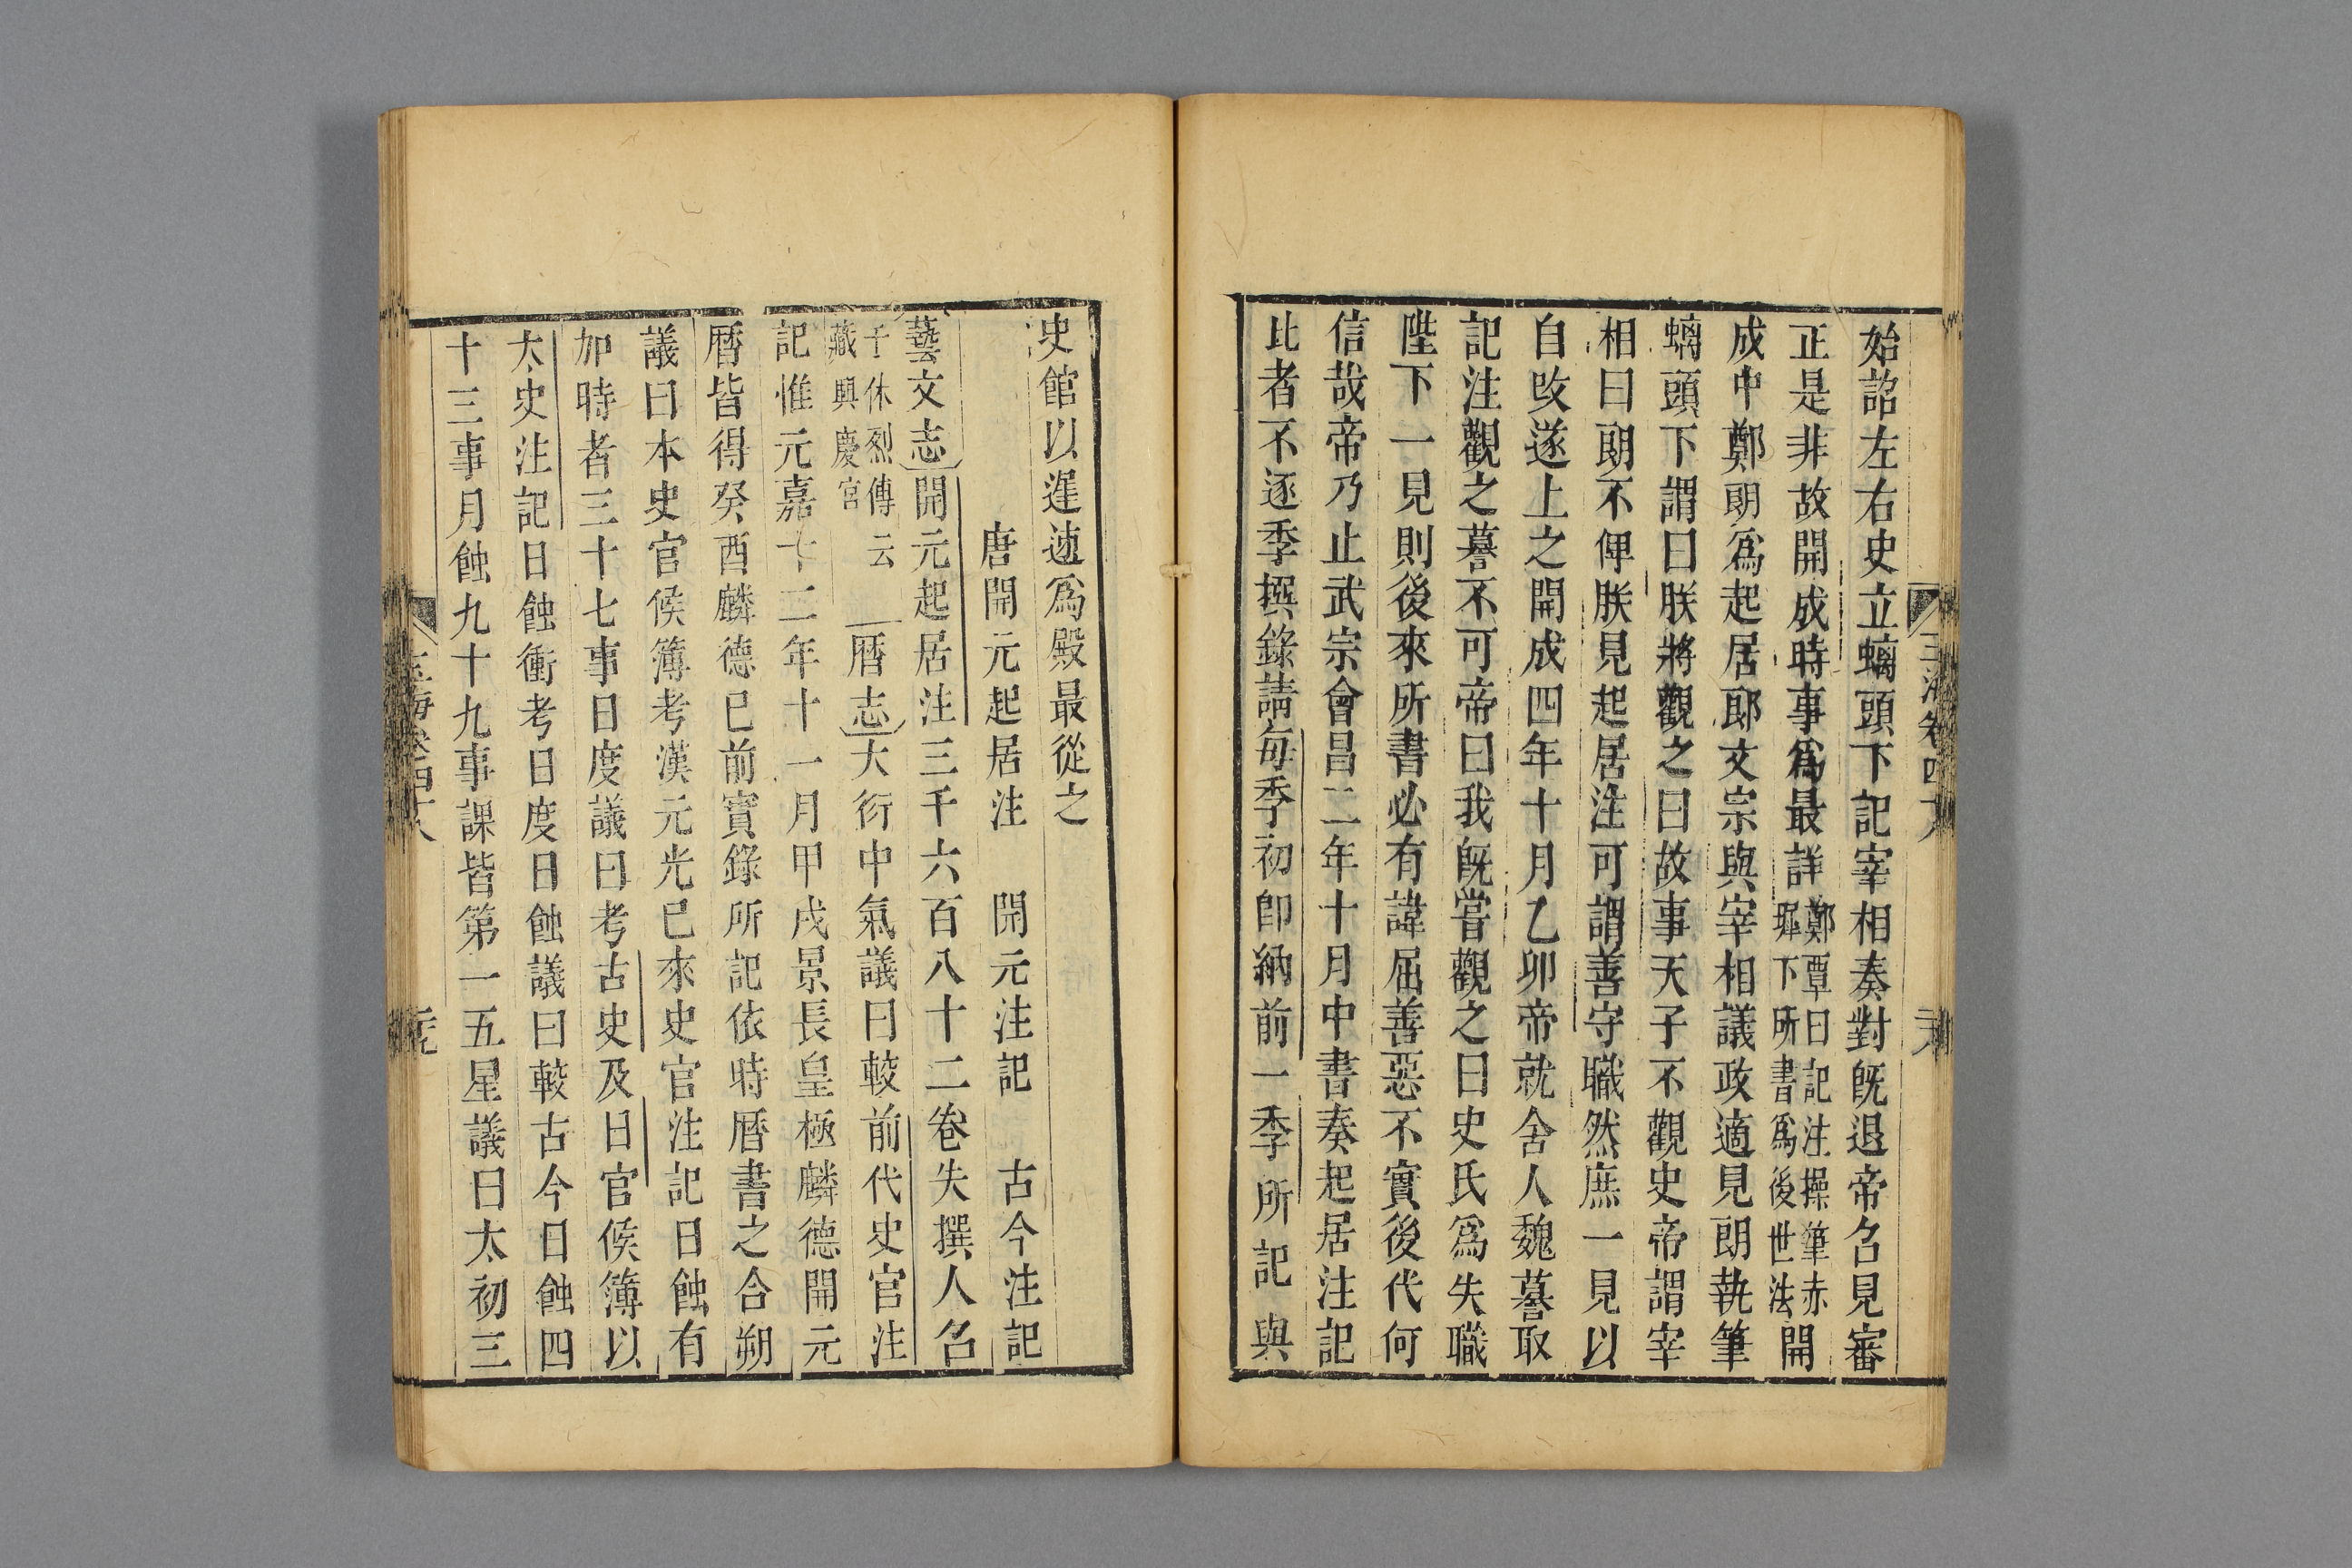 始詔左右史立螭頭下記宰相奏對旣退帝召見審
正是非故開成時事爲最詳鄭覃曰記注操筆赤墀下所書爲後世法開
成中鄭朗爲起居郎文宗與宰相議政適見朗執筆
螭頭下謂曰朕將觀之曰故事天子不觀史帝謂宰
相曰朗不俾朕見起居注可謂善守職然庶一見以
自攺遂上之開成四年十月乙卯帝就舍人魏謩取
記注觀之謩不可帝曰我旣嘗觀之曰史氏爲失職
陛下一見則後來所書必有諱屈善惡不實後代何
信哉帝乃止武宗會昌二年十月中書奏起居注記
比者不逐季撰錄請每季初卽納前一季所記與
史館以遲速爲殿最從之
唐開元起居注 開元注記 古今注記
藝文志開元起居注三千六百八十二卷失撰人名
于休烈傳云藏興慶宮 曆志大衍中氣議曰較前代史官注
記惟元嘉十二年十一月甲戌景長皇極麟德開元
曆皆得癸酉麟德已前實錄所記依時曆書之合朔
議曰本史官候簿考漢元光已來史官注記日蝕有
加時者三十七事日度議曰考古史及日官候簿以
太史注記日蝕衝考日度日蝕議曰較古今日蝕四
十三事月蝕九十九事課皆第一五星議曰太初三
玉海卷四十八